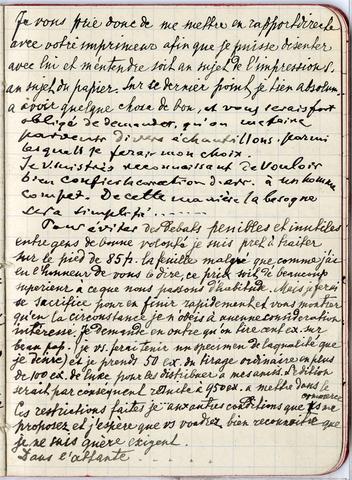 Je vous prie donc de me mettre en rapport directe
avec votre imprimeur afin que je puisse discuter
avec lui et m'entendre soit au sujet de l'impressions,
au sujet du papier. Sur ce dernier point, je tien absolum.
a avoir quelque chose de bon, et vous serais fort
obligé de demander, qu'on me fasse
parvenir divers échantillons, parmi
lesquels je ferai mon choix.
Je vous très reconnaissant de vouloir
bien confier la correction d'avr. à un homme
compet. De cette manière la besogne
sera simplifié......
Pour éviter des debats penibles et inutiles
entre gens de bonne volonté je suis prêt à traiter
sur le pied de 85 fr. la feuille malgré que comme j'ai
eu l'honneur de vous le dire, ce prix soit de beaucoup
superieur à ce que nous payons d'habitude. Mais je ferai
ce sacrifice pour en finir rapidement et vous montrer
qu'en la circonstance je n'obéis à aucune considération
interessé. Je demande en outre qu'on tire cent ex. sur
beau pap. (je vs. ferai tenir un specimen de la qualité que
je desire) et je prends 50 ex. du tirage ordinaire en plus
de 100 ex. de luxe pour les distribuer à mes amis. L'édition
serait par consequent réduite à 950 ex. a mettre dans le
commerce
les restrictions faites je aux autres conditions que vs me
proposez et j'espère que vs voudrez bien reconnaitre que
je ne suis guère exigent.
Dans l'attente ......